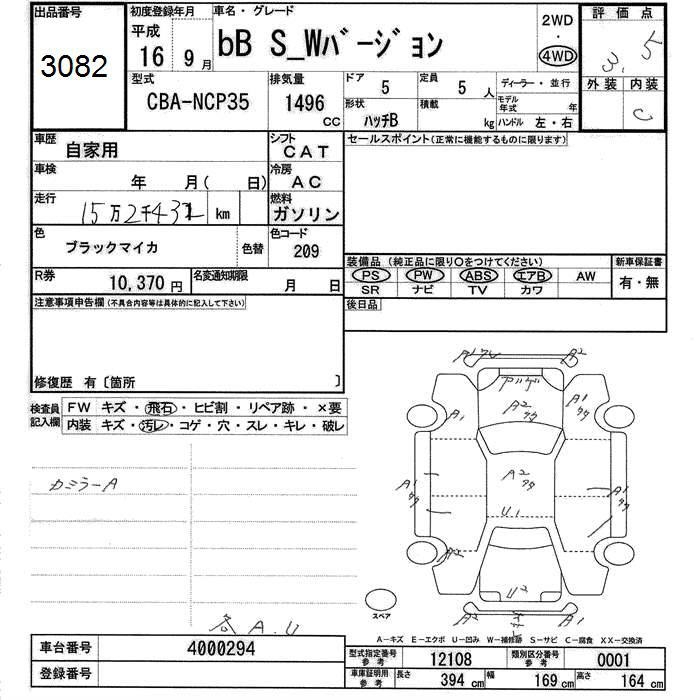 出品番号
3082
初度登録年月
平成
16 9 月
車名・グレード
bB S_Wバージョン
2WD
・
4WD
評価点
3.5
外装 内装
C
型式
CBA-NCP35
排気量
1496
CC
ドア
5
定員
5 人
形状
ハッチB
積載
kg
ディーラー・並行
モデル年式 年
ハンドル 左・右
車歴
自家用
シフト
CAT
車検
年 月( 日)
冷房
AC
走行
15万2千43
km
燃料
ガソリン
色
ブラックマイカ
色替
色コード
209
R券
10,370 円
名変通知期限
月 日
セールスポイント(正常に機能するものに限ります)
装備品(純正品に限り○をつけてください)
PS PW ABS エアB AW
SR ナビ TV カワ
新車保証書
有・無
後日品
注意事項申告欄(不具合内容等は具体的に記入して下さい)
修復歴 有〔箇所 〕
検査員
記入欄
FW キズ・飛石・ヒビ割・リペア跡・×要
内装 キズ・汚レ・コゲ・穴・スレ・キレ・破レ
カミラーA
各A.U
A2
A2
A1
A1
A2
A1
A1
U1
A2
U2
A2
A2
スペア
A−キズ E−エクボ U−凹み W−補修跡 S−サビ C−腐食 XX−交換済
車台番号
4000294
登録番号
型式指定番号
参考
12108
類別区分番号
参考
0001
車庫証明用
参考
長さ 394 cm
幅 169 cm
高さ 164 cm